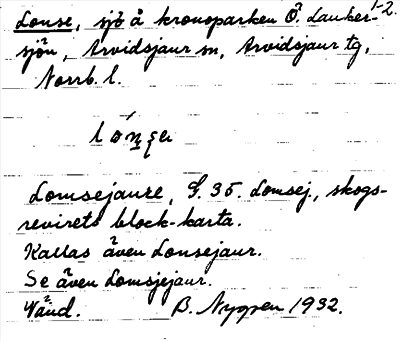 Lonse, sjö å kronoparken Ö. Lauker- 1-2.
sjön, Arvidsjaur sn, Arvidsjaur tg,
Norrb. l.
Lomsejaure, G. 35. Lomsej., skogs-
revirets block-karta.
Kallas även Lonsejaur.
Se även Lomsjejaur.
Vänd. B. Nygren 1932.